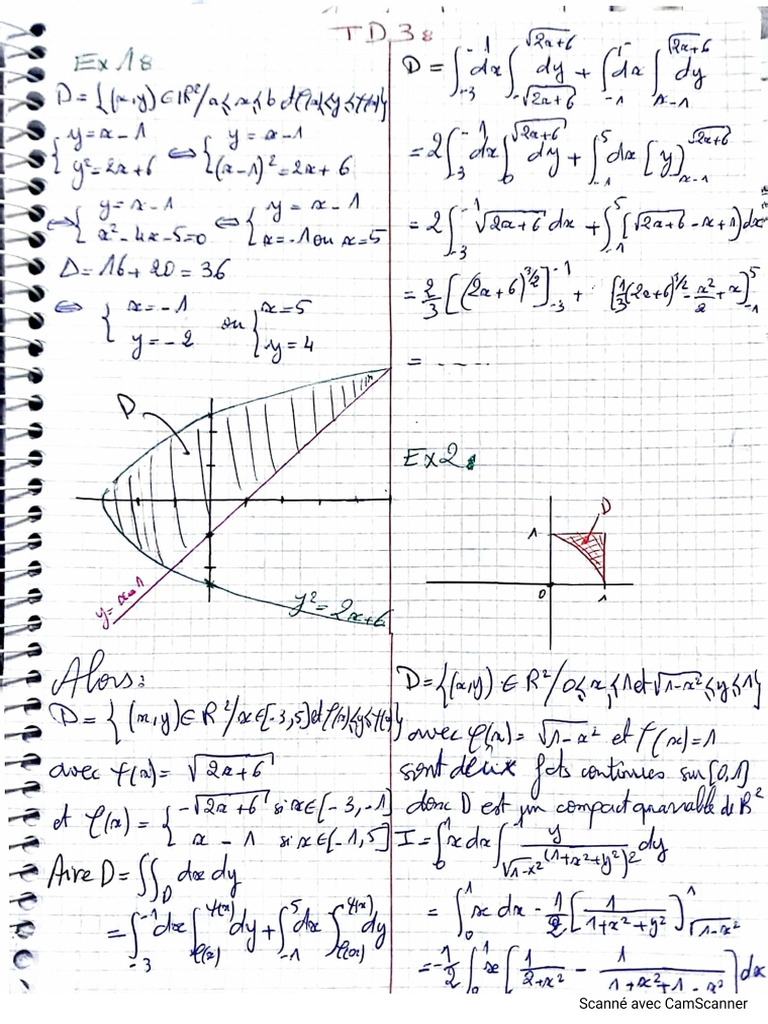 TD3:
Ex1:
D = {(x,y) ∈ IR²/ a≤x≤b et φ(x)≤y≤ψ(x)}
{ y = x-1 ; y² = 2x+6 ⇔ { y = x-1 ; (x-1)² = 2x+6
⇔ { y = x-1 ; x²-4x-5=0 ⇔ { y = x-1 ; x=-1 ou x=5
Δ = 16+20 = 36
⇔ { x=-1 ; y=-2 ou { x=5 ; y=4
D
y=x-1
y²=2x+6
Alors:
D = { (x,y)∈R²/x∈[-3,5] et φ(x)≤y≤ψ(x)}
avec ψ(x) = √(2x+6)
et φ(x) = { -√(2x+6) si x∈[-3,-1] ; x-1 si x∈[-1,5]
Aire D = ∬_D dx dy
= ∫_{-3}^{-1} dx ∫_{φ(x)}^{ψ(x)} dy + ∫_{-1}^{5} dx ∫_{φ(x)}^{ψ(x)} dy
D = ∫_{-3}^{-1} dx ∫_{-√(2x+6)}^{√(2x+6)} dy + ∫_{-1} dx ∫_{x-1}^{√(2x+6)} dy
= 2∫_{-3}^{-1} dx ∫_0^{√(2x+6)} dy + ∫_{-1}^{5} dx [y]_{x-1}^{√(2x+6)}
= 2∫_{-3}^{-1} √(2x+6) dx + ∫_{-1}^{5} (√(2x+6) - x+1) dx
= 2/3 [(2x+6)^{3/2}]_{-3}^{-1} + [1/3(2x+6)^{3/2} - x²/2 + x]_{-1}^{5}
= .....
Ex2:
D
1
0
1
D = {(x,y) ∈ R²/ 0≤x≤1 et √(1-x²)≤y≤1}
avec φ(x) = √(1-x²) et ψ(x) = 1
sont deux fcts continues sur [0,1]
donc D est un compact quarrable de R²
I = ∫_0^1 x dx ∫_{√(1-x²)}^1 y/(1+x²+y²)² dy
= ∫_0^1 x dx - 1/2 [1/(1+x²+y²)]_{√(1-x²)}^1
= -1/2 ∫_0^1 x [1/(2+x²) - 1/(1+x²+1-x²)] dx
Scanné avec CamScanner